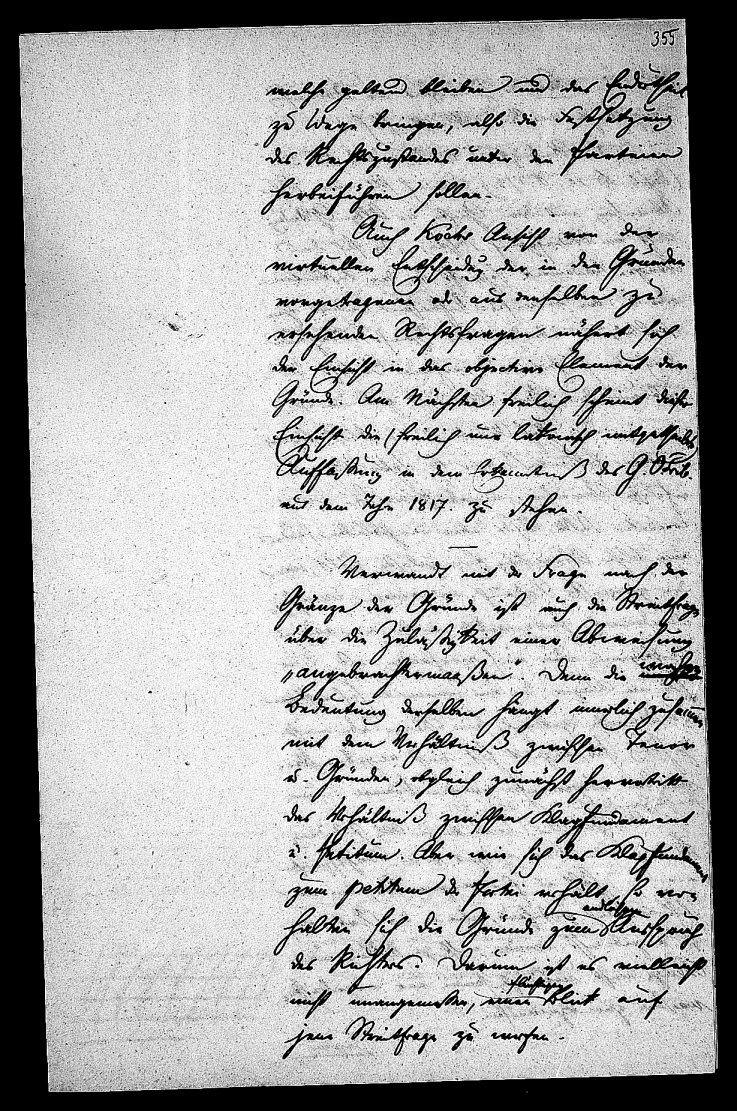 355
welche geltend bleiben und das Endurtheil
zu Wege bringen, also die Festsetzung
des Rechtszustandes unter den Partheien
herbeiführen sollen.
Auch Kochs Ansicht von der
virtuellen Entscheidung der in den Gründen
vorgetragenen od. aus denselben zu
ersehenden Rechtsfragen nähert sich
der Einsicht in das objective Element der
Gründe. Am Nächsten freilich scheint dieser
Einsicht die (freilich nur lakonisch mitgetheilte)
Auffassung in dem Erkenntniß des G. O Trib.
aus dem Jahr 1817. zu stehen.
Verwandt mit der Frage nach der
Gränze der Gründe ist auch die Streitfrage
über die Zuläßigkeit einer Abweisung
„angebrachtermaaßen“. Denn die wahre
Bedeutung derselben hängt innerlich zusammen
mit dem Verhältniß zwischen Tenor
u. Gründen, obgleich zunächst hervortritt
das Verhältniß zwischen Klagfundament
u. Petitum. Aber wie sich das Klagfundament
zum petitum der Partei verhält, so ver-
halten sich die Gründe zum endlichen Ausspruch
des Richters. Darum ist es vielleicht
nicht unangemessen, einen flüchtigen Blick auf
jene Streitfrage zu werfen.